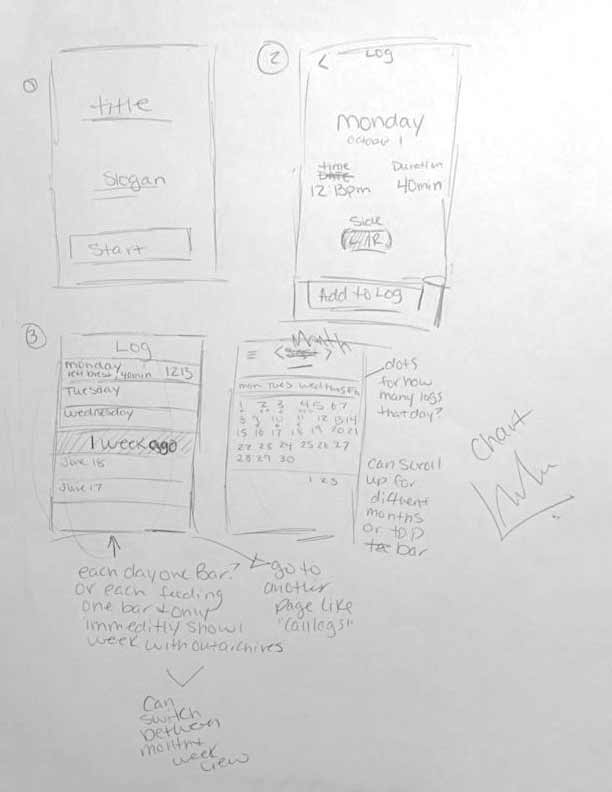 1
Title
Slogan
Start
2
< Log
Monday
October 1
time
DATE
Duration
12:13pm
40min
Side
L/R
Add to LOG
3
LOG
monday
left brest, 40min 1213
Tuesday
wednesday
1 week ago
June 18
June 17
Month
< >
mon Tues wed thurs Fri
1 2 3 4 5 6 7
8 9 10 11 12 13 14
15 16 17 18 19 20 21
22 23 24 25 26 27
28 29 30
1 2 3
dots
for how
many logs
that day?
can scroll
up for
different
months
or top
bar
Chart
each day one Bar?
or each feeding
one bar + only
immeditly show 1
week without archives
go to
another
page like
"call logs"
Can
switch
between
month +
week
view